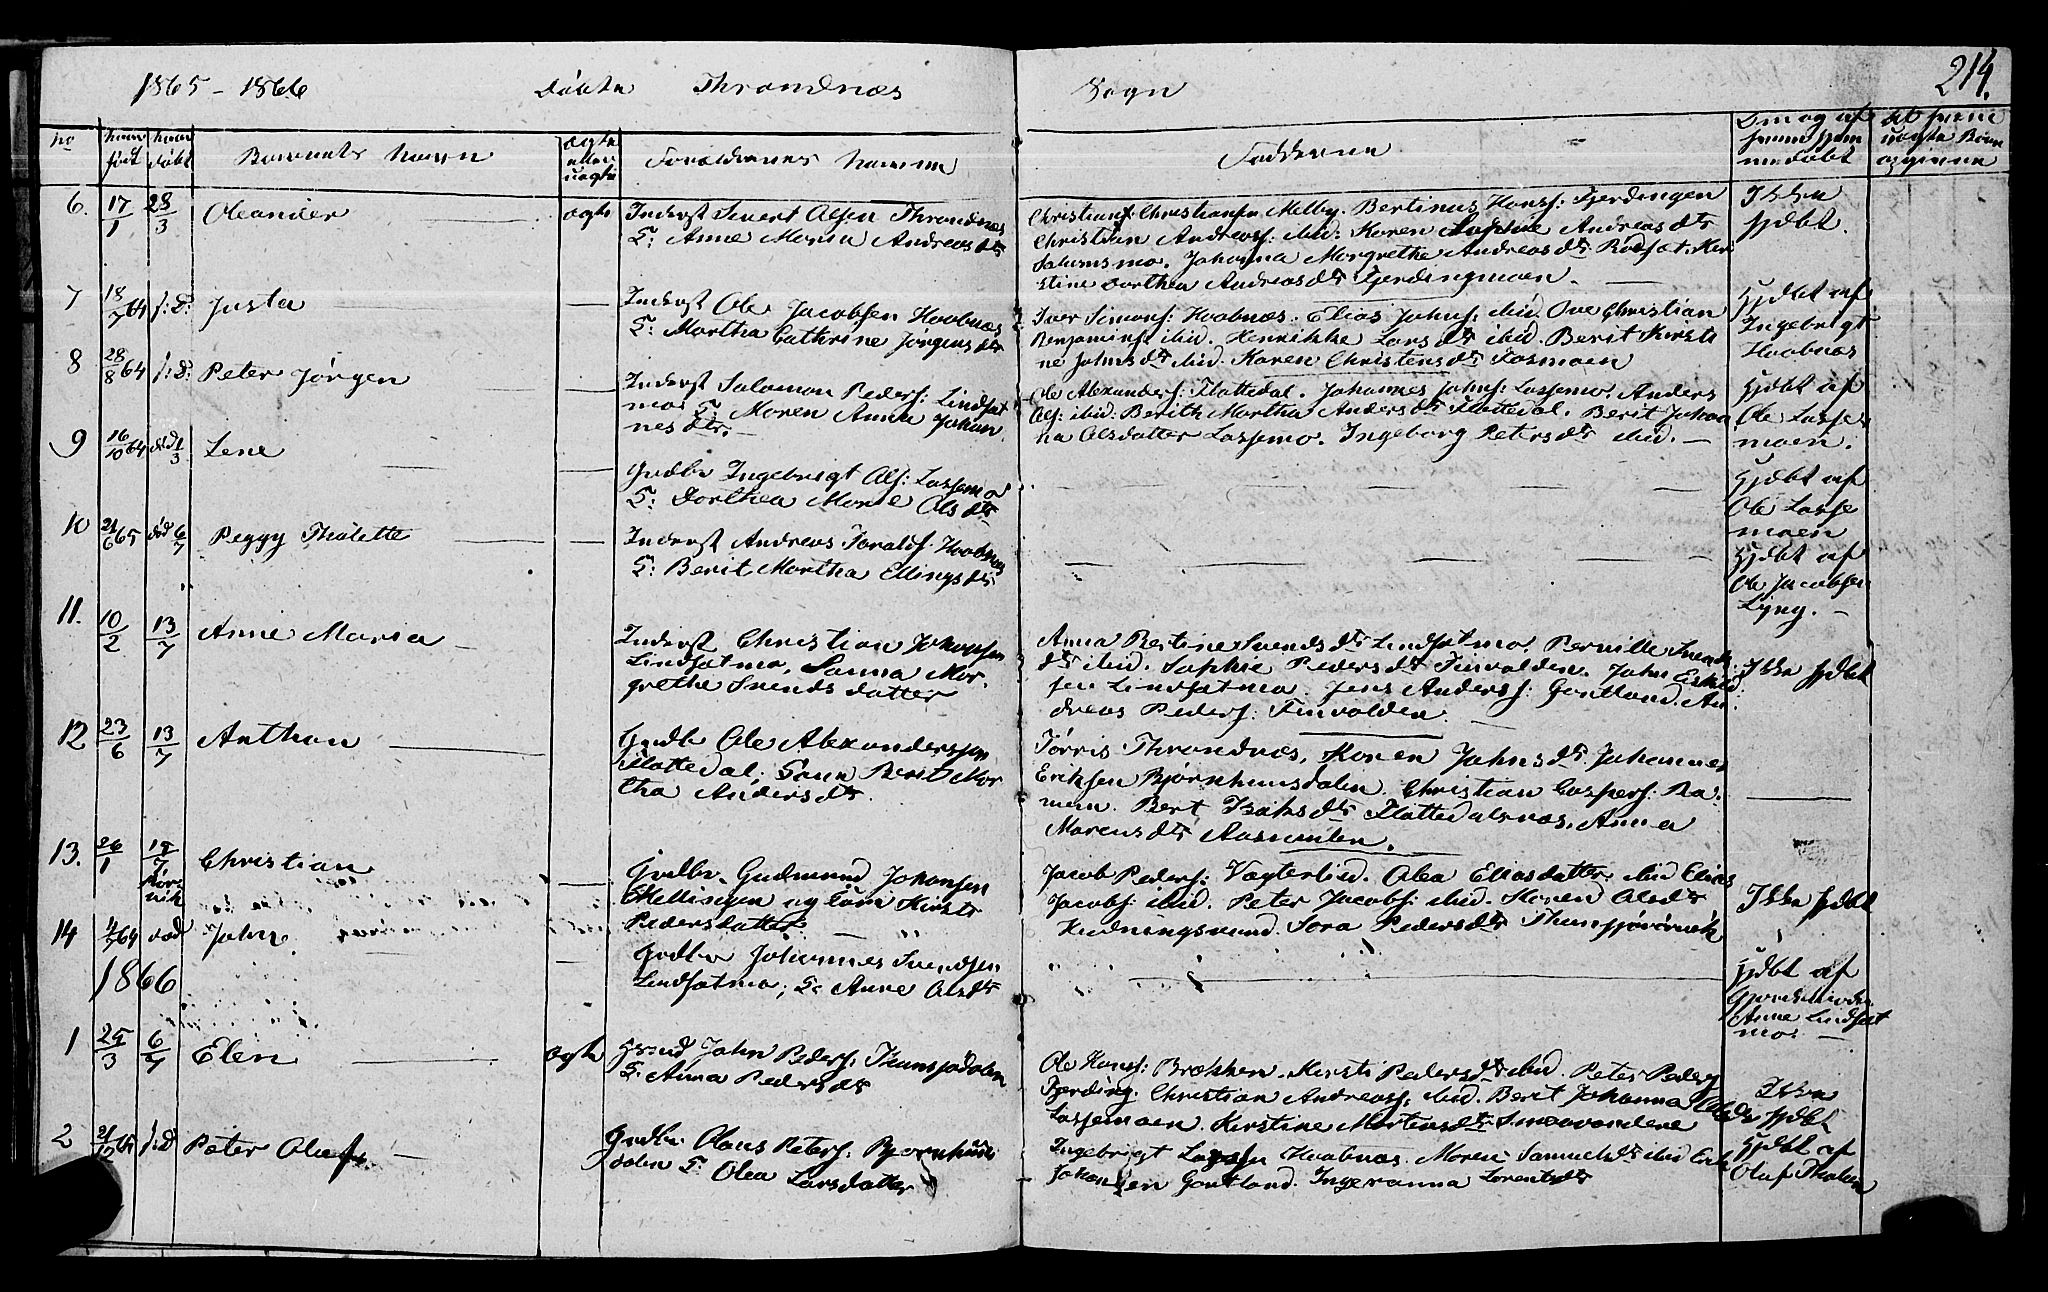 1865 - 1866 Döbte Throndnæs Sogn 214.
No naar født naar døbt Barnets Navn ægte eller uægte Forældrenes Navne Fadderne Om og af hvem hjemmedøbt
6. 17/1 28/3 Oleander ægte Inderst Sivert Olsen Throndnæs
H: Anne Maria Andreasdtr
Christians: Christiansen Melby. Bertinus Hans: Fjerdingen
Christian Andreass: ibid: Karen Sophie Andreasdtr
Johanna Margrethe Andreasdtr Kir
stine Dorthea Andreasdtr Fjerdingmoen.
Ikke hjdbt.
7 18/7 64 Justa Inderst Ole Jacobsen Hoabnæs
H: Martha Cathrine Jörgensdtr
Iver Simons: Hoabnæs. Elias Johns: ibid. Ove Christian
Benjamins: ibid. Henrikke Larsdtr ibid. Berit Kirsti
ne Johnsdtr ibid. Karen Christensdtr Fosmoen
Hjdbt af
Ingebrigt
Hoabnæs
8 28/8 64 Peter Jørgen Inderst Salomon Peders: Lindsæt
mo H: Maren Anna Johan
nesdtr.
Ole Alexanders: Flottedal. Johannes Johns: Lassemo. Anders
Ols: ibid: Berith Martha Andersdtr Flottedal. Berit Johan
na Olsdatter Lassemo. Ingeborg Petersdtr ibid.
Hjdbt af
Ole Lasse
moen.
9 16/10 64 død 1/3 Lene Grdbr Ingebrigt Ols: Lassemo
H: Dorthea Marie Olsdtr
Hjdbt af
Ole Lasse
moen
10 21/6 65 død 6/7 Peggy Thalette Inderst Andreas Toralds: Hoabnæs
H: Berit Martha Ellingsdtr
Hjdbt af
Ole Jacobsen
Lyng.
11. 10/2 13/7 Anne Maria Inderst Christian Johansen
Lindsætmo. Sanna Mar
grethe Svends datter
Anna Bertine Svendsdtr Lindsætmo. Pernille Svends
dtr ibid. Sophie Pedersdtr Finvolden. John Eskild
sen Lindsætmo. Jens Anderss: Gartland. An
dreas Peders: Finvolden.
Ikke hjdbt
12 23/6 13/7 Anthon Grdbr Ole Alexandersen
Flottedal; Berit Mar
tha Andersdtr.
Tørris Throndnæs, Karen Johnsdtr Johannes
Eriksen Bjørnhuusdalen. Christian Caspers:
Isaksdtr Flottedalsnæs. Anna
Marensdtr
13. 26/1 Christian Grdbr. Gudmund Johansen
Mellingen og Kirsti
Pedersdatter
Jacob Peders: Vogterlied. Olea Eliasdatter ibid Elias
Jacobs: ibid. Peter Jacobs: ibid. Karen Olsdtr
Sara Pedersdtr
Ikke hjdbt
14 død Johne Grdbr Johannes Svendsen
Lindsætmo; H: Anne Olsdtr
Hjdbt af
Anne Lindsæt
mo.
1866
1 25/3 6/7 Elen ægte John Peders: Tunsjødalen
H: Anna Pedersdtr
Ole Hans: Brækken. Kirsti Pedersdtr ibid. Peter Peders
Fjerding. Christian Andreass: ibid. Berit Johanna Olsdtr
Lassemoen. Kirstine Martinsdtr Smaavandene
Ikke
hjdbt
2 Peter Oluf Grdbr Olaus Peters: Bjørnhuus
dalen H: Olea Larsdatter
Ingebrigt Larsen Hoabnæs. Maren Samuelsdtr ibid
Johansen Gartland. Ingeranna Lorentsdtr
Hjdbt af
Oluf